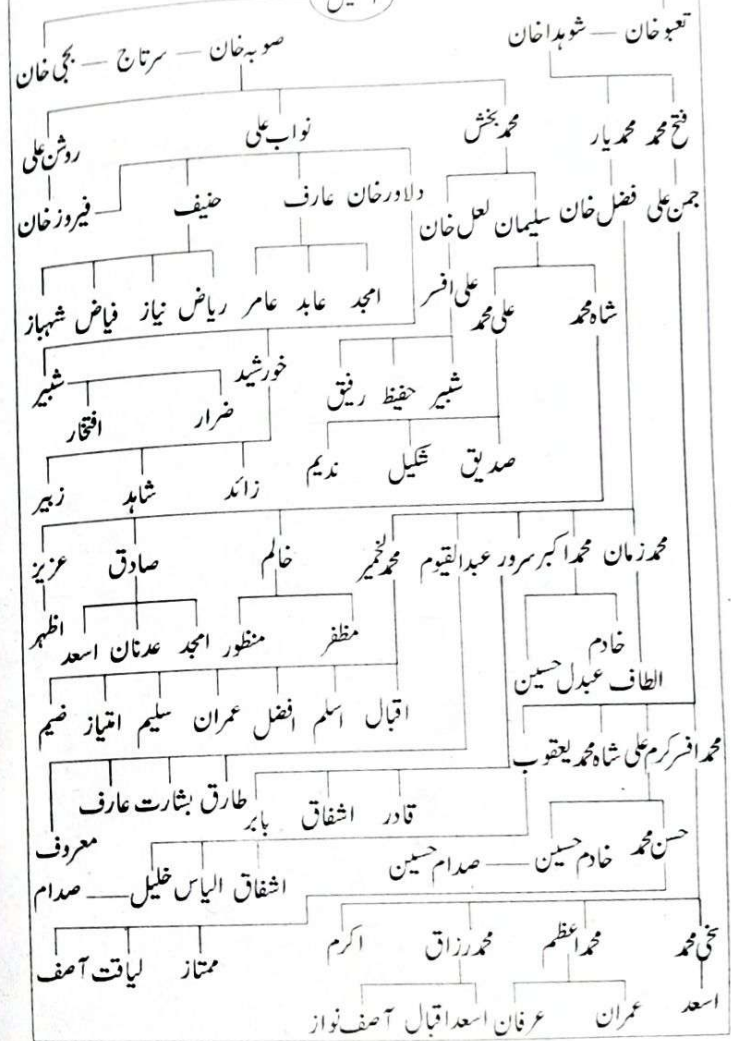 تعبوخان — شوہداخان
صوبہ خان — سرتاج — بجی خان
فتح محمد محمد یار محمد بخش نواب علی روشن علی
جمن علی فضل خان سلیمان لعل خان دلاورخان عارف حنیف فیروزخان
شاہ محمد علی محمد علی افسر امجد عابد عامر ریاض نیاز فیاض شہباز
شبیر حفیظ رفیق خورشید شبیر
ضرار افتخار
صدیق شکیل ندیم زائد شاہد زبیر
محمد زمان محمد اکبر سرور عبدالقیوم خالم صادق عزیز
مظفر منظور امجد عدنان اسعد اظہر
خادم
الطاف عبدل حسین
اقبال اسلم افضل عمران سلیم امتیاز ضیم
محمد افسر کرم علی شاہ محمد یعقوب
قادر اشفاق بابر طارق بشارت عارف معروف
حسن محمد خادم حسین — صدام حسین
اشفاق الیاس خلیل — صدام
محمد اعظم محمد رزاق اکرم ممتاز لیاقت آصف
اسعد عمران عرفان اسعد اقبال آصف نواز